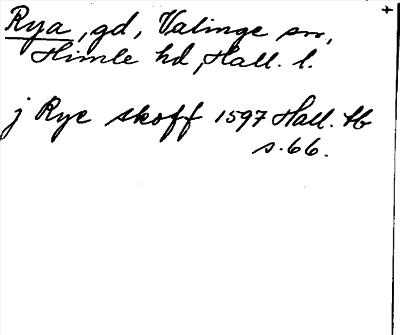 Rya, gd, Valinge sn,
Himle hd, Hall. l.
j Rye skoff 1597 Hall. tb
s. 66.